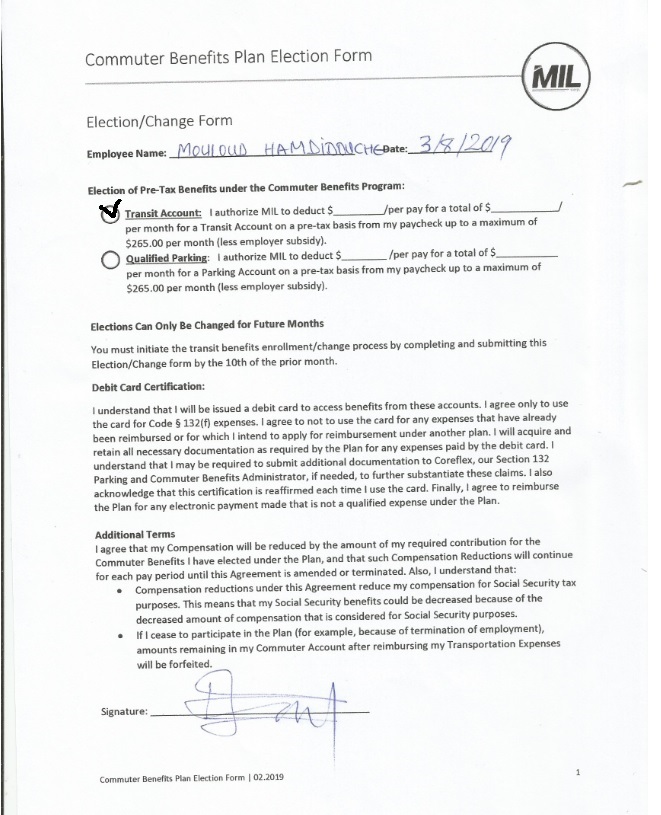 Commuter Benefits Plan Election Form
MIL
Election/Change Form
Employee Name: MOULOUD HAMDIDOUCHE Date: 3/8/2019
Election of Pre-Tax Benefits under the Commuter Benefits Program:
Transit Account: I authorize MIL to deduct $________/per pay for a total of $___________/
per month for a Transit Account on a pre-tax basis from my paycheck up to a maximum of
$265.00 per month (less employer subsidy).
Qualified Parking: I authorize MIL to deduct $_______ /per pay for a total of $__________
per month for a Parking Account on a pre-tax basis from my paycheck up to a maximum of
$265.00 per month (less employer subsidy).
Elections Can Only Be Changed for Future Months
You must initiate the transit benefits enrollment/change process by completing and submitting this
Election/Change form by the 10th of the prior month.
Debit Card Certification:
I understand that I will be issued a debit card to access benefits from these accounts. I agree only to use
the card for Code § 132(f) expenses. I agree to not to use the card for any expenses that have already
been reimbursed or for which I intend to apply for reimbursement under another plan. I will acquire and
retain all necessary documentation as required by the Plan for any expenses paid by the debit card. I
understand that I may be required to submit additional documentation to Coreflex, our Section 132
Parking and Commuter Benefits Administrator, if needed, to further substantiate these claims. I also
acknowledge that this certification is reaffirmed each time I use the card. Finally, I agree to reimburse
the Plan for any electronic payment made that is not a qualified expense under the Plan.
Additional Terms
I agree that my Compensation will be reduced by the amount of my required contribution for the
Commuter Benefits I have elected under the Plan, and that such Compensation Reductions will continue
for each pay period until this Agreement is amended or terminated. Also, I understand that:
• Compensation reductions under this Agreement reduce my compensation for Social Security tax
purposes. This means that my Social Security benefits could be decreased because of the
decreased amount of compensation that is considered for Social Security purposes.
• If I cease to participate in the Plan (for example, because of termination of employment),
amounts remaining in my Commuter Account after reimbursing my Transportation Expenses
will be forfeited.
Signature:
Commuter Benefits Plan Election Form | 02.2019
1